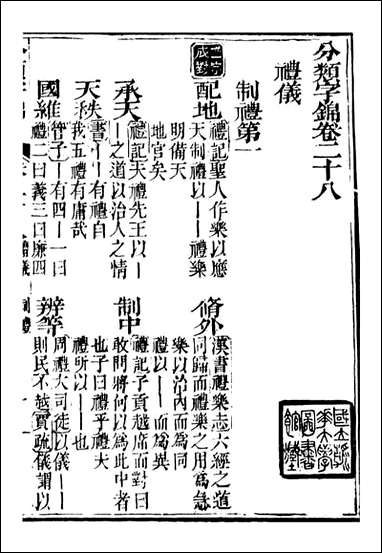 分類字錦卷二十八
禮儀
制禮第一
二字成對
配地
禮記聖人作樂以應
天制禮以丨丨禮樂
明備天
地官矣
脩外
漢書禮樂志六經之道
同歸而禮樂之用爲急
樂以治內而爲同
禮以丨丨而爲異
承天
禮記夫禮先王以丨
丨之道以治人之情
制中
禮記子貢越席而對曰
敢問將何以爲此中者
也子曰禮乎禮夫
禮所以丨丨也
天秩
書丨丨有禮自
我五禮有庸哉
國維
管子丨有四丨一曰
禮二曰義三曰廉四
辨等
周禮大司徒以儀丨丨
則民不越賈疏儀謂以